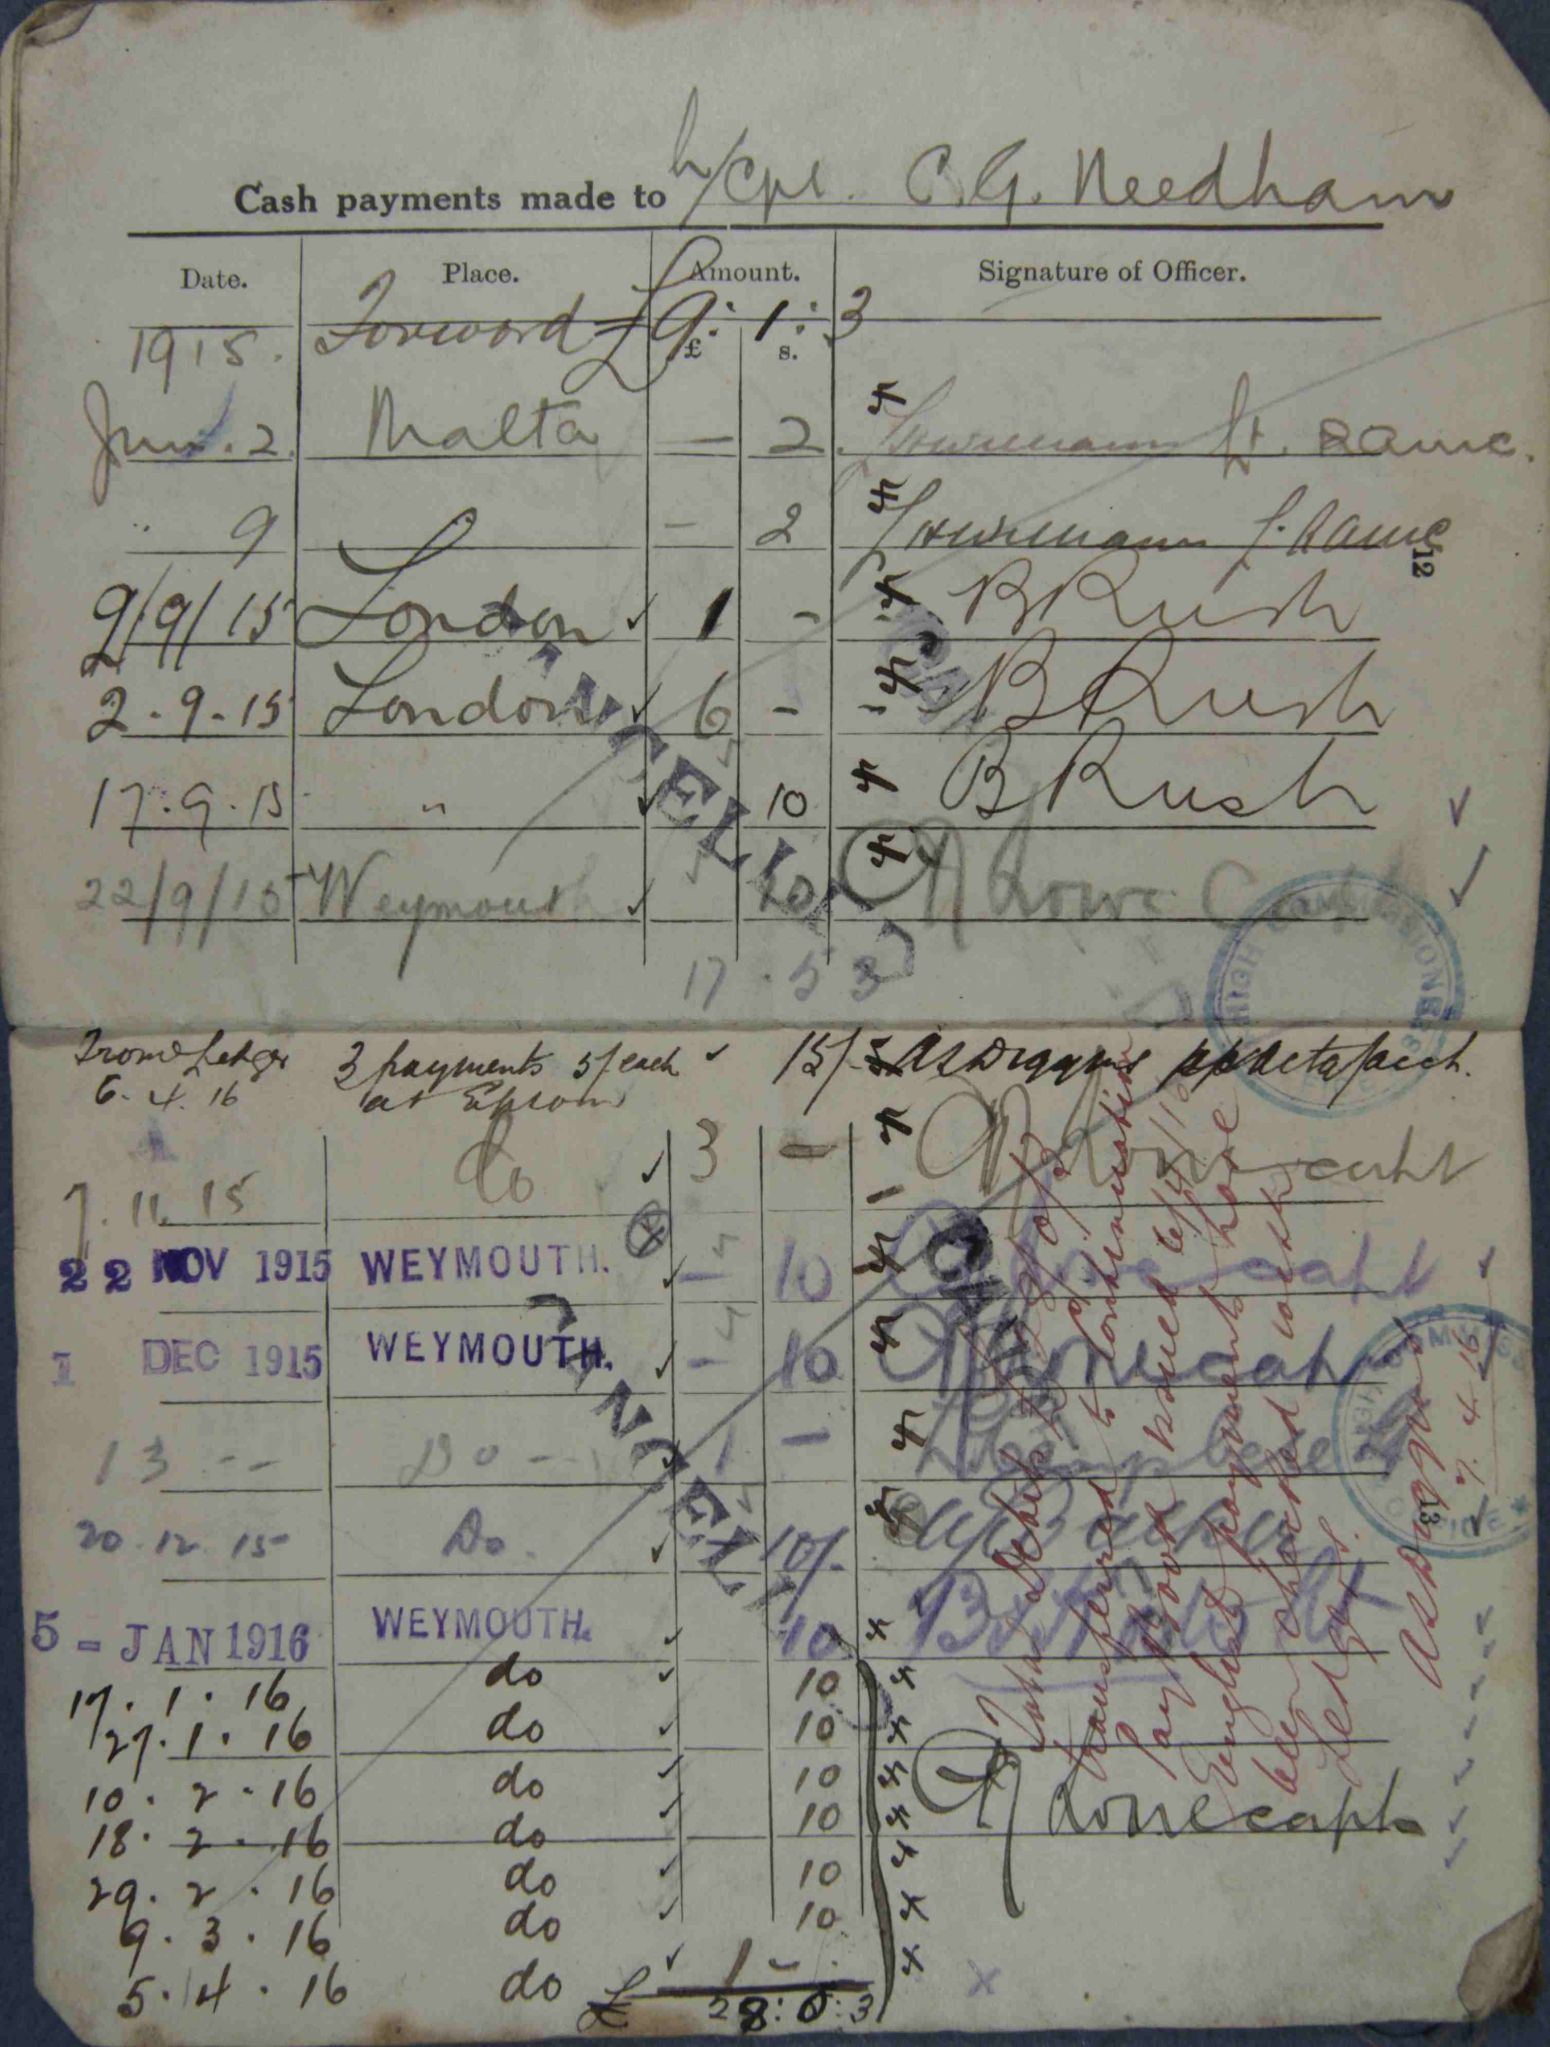 Cash payments made to L/Cpl. C.G. Needham
Date. Place. Amount. Signature of Officer.
Forward £9: 1: 3
1915. £ s.
Jun. 2. Malta — 2 Lt. RAMC.
" 9 — 2
9/9/15 London 1 - B Rush
2.9.15 London 6 - B Rush
17.9.15 " 10 B Rush
22/9/15 Weymouth 10 Capt
12
17.5 3
CANCELLED
HIGH COMMISSIONER
From Ledger 3 payments 5/ each 15/-
6.4.16 at Epsom
7.11.15 Do 3 — capt
22 NOV 1915 WEYMOUTH. — 10 capt
1 DEC 1915 WEYMOUTH. - 10 capt
13 -- Do - 1 -
20.12.15 Do. 10/-
5 - JAN 1916 WEYMOUTH. 10
17.1.16 do 10
27.1.16 do 10
10.2.16 do 10
18.2.16 do 10 capt.
29.2.16 do 10
9.3.16 do 10
5.4.16 do 1 - .
£ 28:0:3
CANCELLED
Total Debit £28/0/3
transferred to continuation
Pay Book issued 6/4/16
English payments have
been checked with
Ledgers.
7.4.16
13